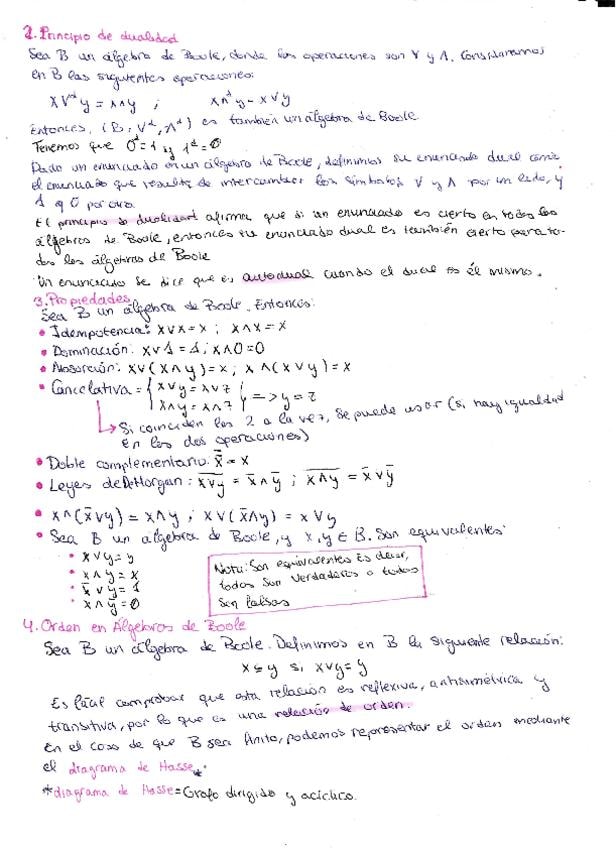 2. Principio de dualidad
Sea B un álgebra de Boole, donde las operaciones son ∨ y ∧. Consideramos
en B las siguientes operaciones:
x ∨ᵈ y = x ∧ y ; x ∧ᵈ y = x ∨ y
Entonces, (B, ∨ᵈ, ∧ᵈ) es también un álgebra de Boole.
Tenemos que 0ᵈ = 1 y 1ᵈ = 0
Dado un enunciado en un álgebra de Boole, definimos su enunciado dual como
el enunciado que resulta de intercambiar los símbolos ∨ y ∧ por un lado, y
1 y 0 por otro.
El principio de dualidad afirma que si un enunciado es cierto en todas las
álgebras de Boole, entonces su enunciado dual es también cierto para to-
das las álgebras de Boole
Un enunciado se dice que es autodual cuando el dual es él mismo.
3. Propiedades
Sea B un álgebra de Boole. Entonces:
• Idempotencia: x∨x = x ; x∧x = x
• Dominación: x∨1 = 1 ; x∧0 = 0
• Absorción: x∨(x∧y) = x ; x∧(x∨y) = x
• Cancelativa = { x∨y = x∨z
x∧y = x∧z } => y = z
↳ Si coinciden las 2 a la vez, se puede usar (si hay igualdad
en las dos operaciones)
• Doble complementario: x̿ = x
• Leyes de DeMorgan: \overline{x∨y} = x̄∧ȳ ; \overline{x∧y} = x̄∨ȳ
• x∧(x̄∨y) = x∧y ; x∨(x̄∧y) = x∨y
• Sea B un álgebra de Boole, y x,y ∈ B. Son equivalentes:
• x∨y = y
• x∧y = x
• x̄∨y = 1
• x∧ȳ = 0
Nota: Son equivalentes es decir,
todas son verdaderas o todas
son falsas
4. Orden en Álgebras de Boole
Sea B un álgebra de Boole. Definimos en B la siguiente relación:
x ≤ y si x∨y = y
Es fácil comprobar que esta relación es reflexiva, antisimétrica y
transitiva, por lo que es una relación de orden.
En el caso de que B sea finito, podemos representar el orden mediante
el diagrama de Hasse*.
*diagrama de Hasse = Grafo dirigido y acíclico.